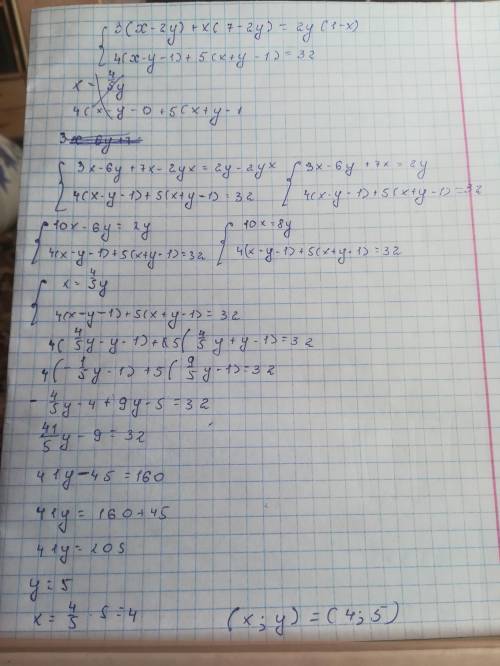 { 3(x-2y)+x(7-2y)=2y(1-x)
4(x-y-1)+5(x+y-1)=32
x=4/5y
4(x-y-0+5(x+y-1
{ 3x-6y+7x-2yx=2y-2yx { 3x-6y+7x=2y
4(x-y-1)+5(x+y-1)=32 4(x-y-1)+5(x+y-1)=32
{ 10x-6y=2y { 10x=8y
4(x-y-1)+5(x+y-1)=32 4(x-y-1)+5(x+y-1)=32
{ x=4/5y
4(x-y-1)+5(x+y-1)=32
4(4/5y-y-1)+5(4/5y+y-1)=32
4(-1/5y-1)+5(9/5y-1)=32
-4/5y-4+9y-5=32
41/5y-9=32
41y-45=160
41y=160+45
41y=205
y=5
x=4/5·5=4 (x;y)=(4;5)